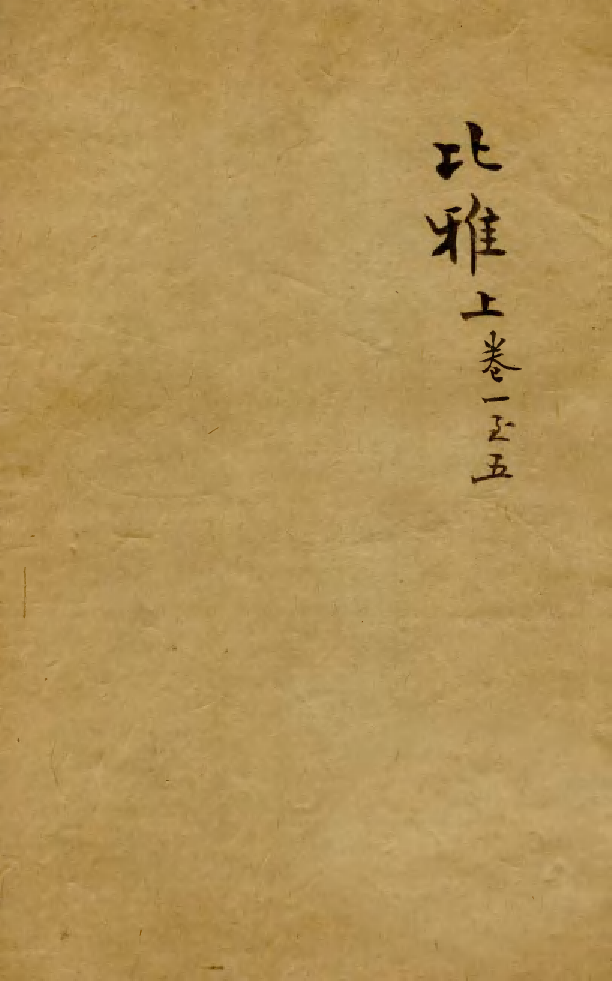 比雅上卷一至五